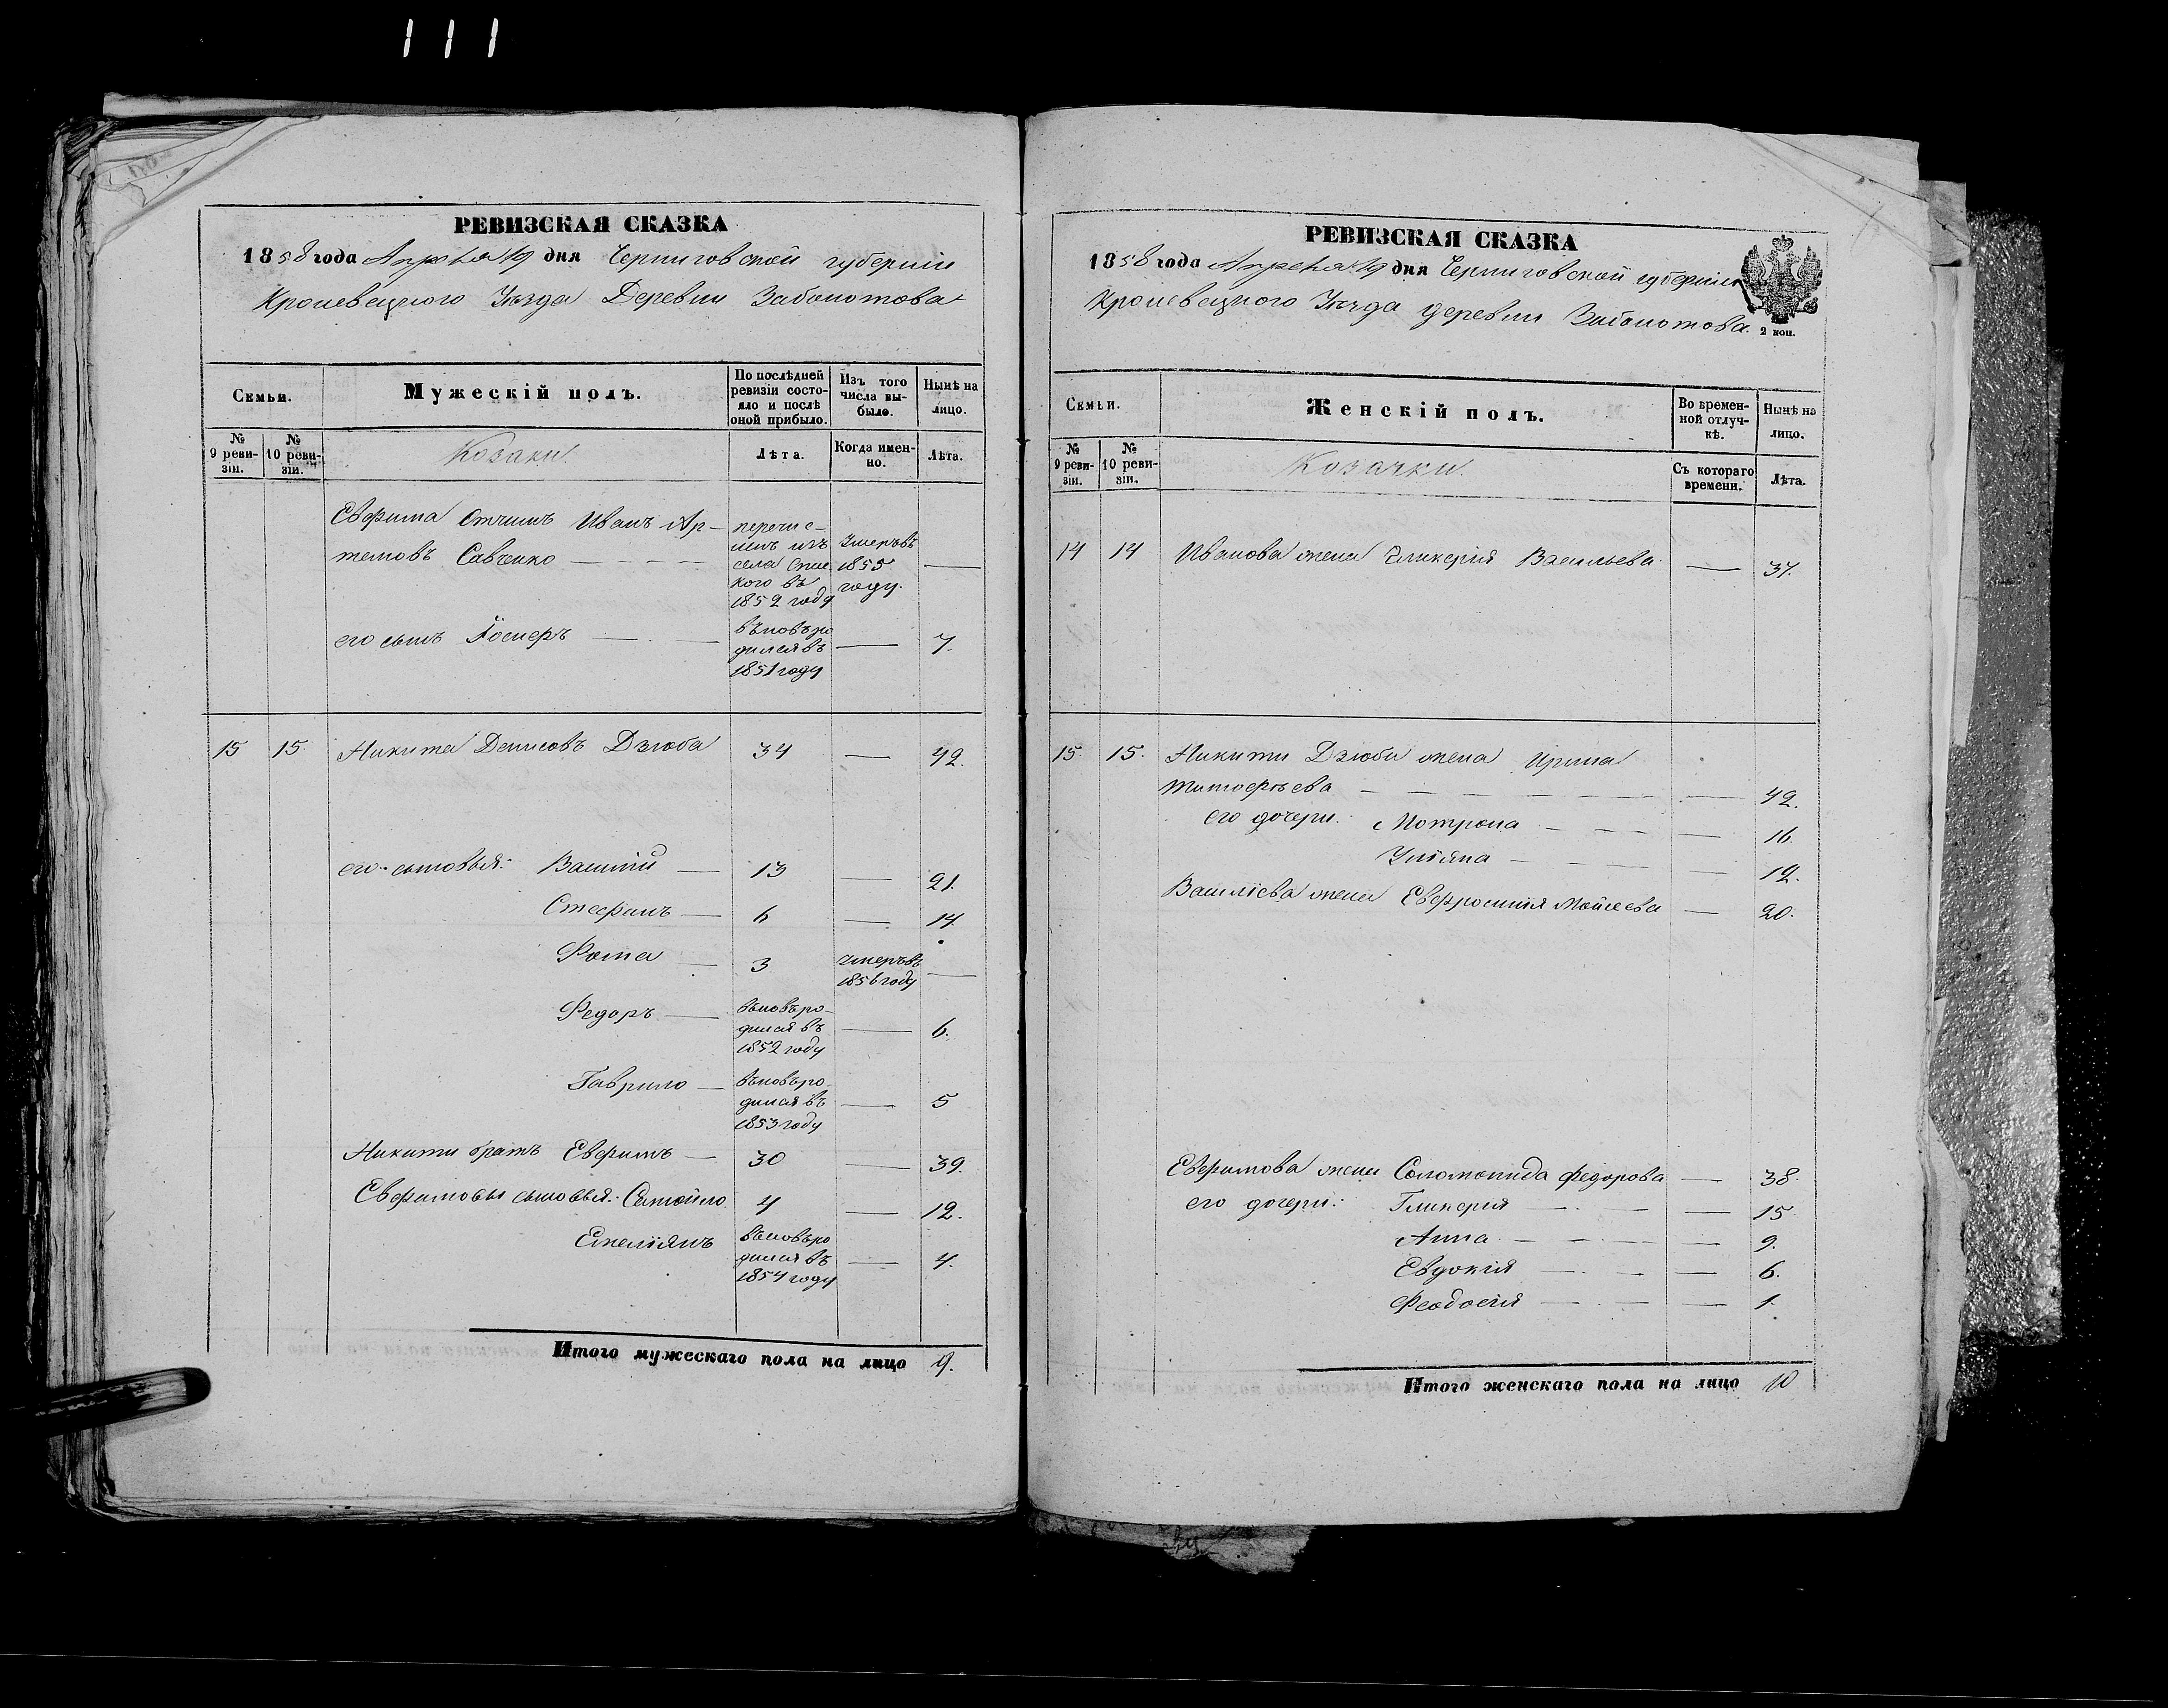 111
РЕВИЗСКАЯ СКАЗКА
1858 года Апреля 19 дня Черниговской губернии
Кролевецкого Уѣзда Деревни Заболотова
Семьи. Мужескій полъ. По послѣдней ревизіи состояло и послѣ оной прибыло. Изъ того числа выбыло. Нынѣ на лицо.
№ 9 ревизіи. № 10 ревизіи. Козаки. Лѣта. Когда именно. Лѣта.
Евфима Отчимъ Иванъ Ар-
темовъ Савченко — перечис-
ленъ изъ
села
кого въ
1852 году
Умеръ въ
1855
году. —
его сынъ Іосифъ — въновь ро
дился въ
1851 году — 7.
15 15. Никита Денисовъ Дзюба 34 — 42.
его сыновья: Василій — 13 — 21.
Стефанъ — 6 — 14.
Фома — 3 умеръ въ
1856 году —
Федоръ — вьновь ро-
дился въ
1852 году — 6.
Гаврило — вьновь ро-
дился въ
1853 году — 5
Никити братъ Евфимъ — 30 — 39.
Евфимовы сыновья: Самойло 4 — 12.
Емеліянъ вьновь ро
дился въ
1854 году — 4.
Итого мужескаго пола на лицо 9.
РЕВИЗСКАЯ СКАЗКА
1858 года Апреля 19 дня Черниговской губернии
Кролевецкого Уѣзда деревни Заболотова.
2 коп.
Семьи. Женскій полъ. Во временной отлучкѣ. Нынѣ на лицо.
№ 9 ревизіи. № 10 ревизіи. Козачки. Съ котораго времени. Лѣта.
14 14 Иванова жена Гликерія Васильева — 37.
15. 15. Никити Дзюби жена Ирина
Тимофѣева — 42.
его дочери: Мотрона — 16.
Уліяна — 12.
Василіева жена Евфросинія Мойсеева — 20.
Евфимова жена Соломонида Федорова — 38.
его дочери: Гликерія — 15.
Анна — 9.
Евдокія — 6.
Феодосія — 1.
Итого женскаго пола на лицо 10